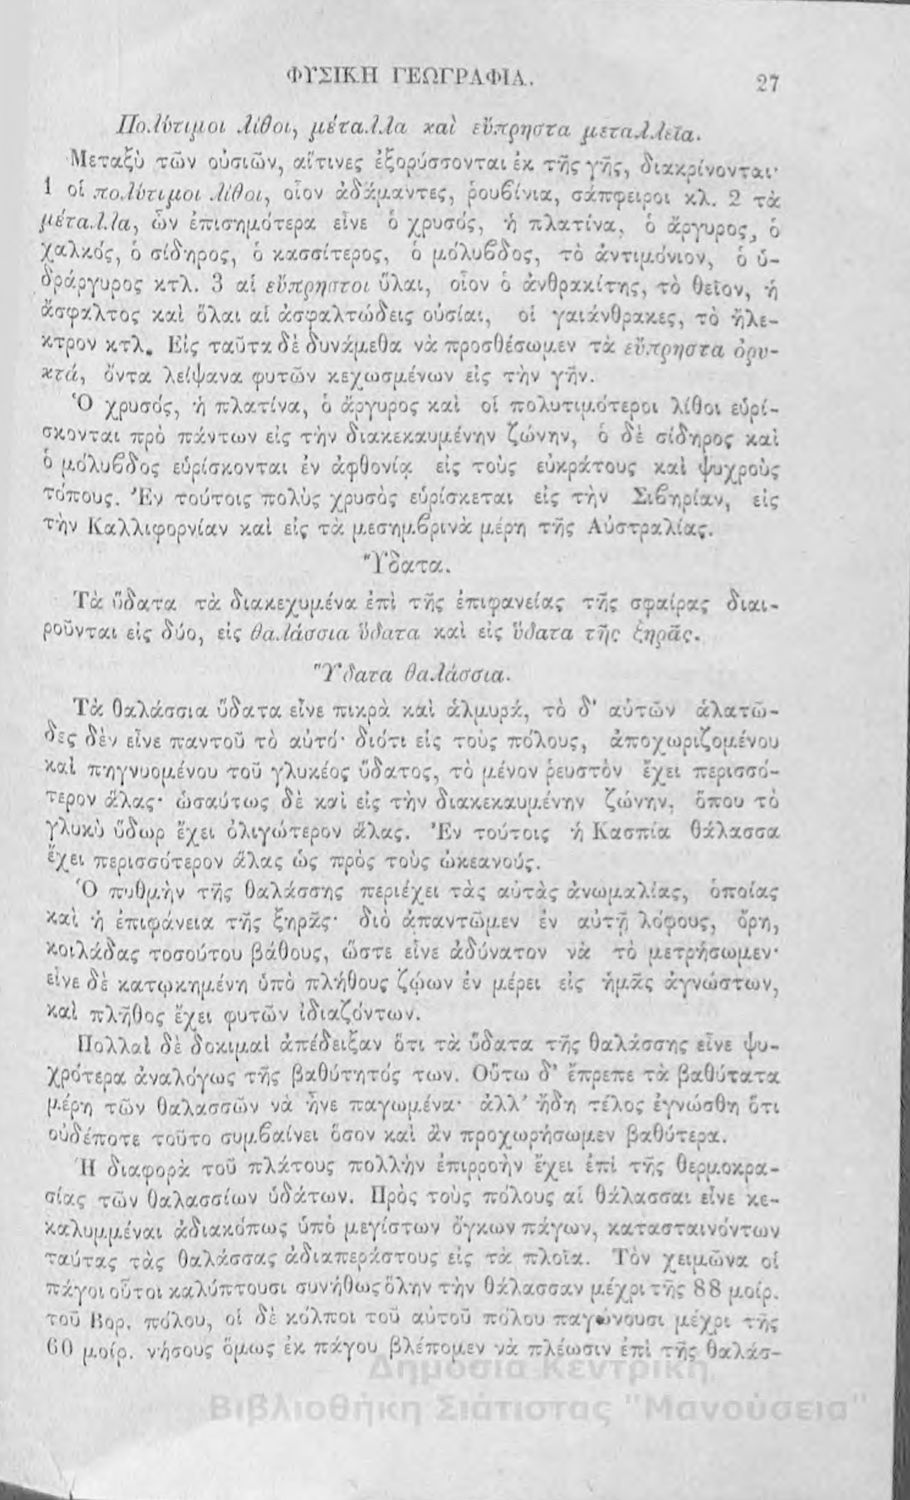 ΦΥΣΙΚΗ ΓΕΩΓΡΑΦΙΑ.
27
Πολύτιμοι λίθοι, μέταλλα καὶ εὔπρηστα μεταλλεῖα.
Μεταξὺ τῶν οὐσιῶν, αἵτινες ἐξορύσσονται ἐκ τῆς γῆς, διακρίνονται·
1 οἱ πολύτιμοι λίθοι, οἷον ἀδάμαντες, ῥουβίνια, σάπφειροι κλ. 2 τὰ
μέταλλα, ὧν ἐπισημότερα εἶνε ὁ χρυσός, ἡ πλατίνα, ὁ ἄργυρος, ὁ
χαλκός, ὁ σίδηρος, ὁ κασσίτερος, ὁ μόλυβδος, τὸ ἀντιμόνιον, ὁ ὑ-
δράργυρος κτλ. 3 αἱ εὔπρηστοι ὗλαι, οἷον ὁ ἀνθρακίτης, τὸ θεῖον, ἡ
ἄσφαλτος καὶ ὅλαι αἱ ἀσφαλτώδεις οὐσίαι, οἱ γαιάνθρακες, τὸ ἤλε-
κτρον κτλ. Εἰς ταῦτα δὲ δυνάμεθα νὰ προσθέσωμεν τὰ εὔπρηστα ὀρυ-
κτά, ὄντα λείψανα φυτῶν κεχωσμένων εἰς τὴν γῆν.
Ὁ χρυσός, ἡ πλατίνα, ὁ ἄργυρος καὶ οἱ πολυτιμότεροι λίθοι εὑρί-
σκονται πρὸ πάντων εἰς τὴν διακεκαυμένην ζώνην, ὁ δὲ σίδηρος καὶ
ὁ μόλυβδος εὑρίσκονται ἐν ἀφθονίᾳ εἰς τοὺς εὐκράτους καὶ ψυχροὺς
τόπους. Ἐν τούτοις πολὺς χρυσὸς εὑρίσκεται εἰς τὴν Σιβηρίαν, εἰς
τὴν Καλλιφορνίαν καὶ εἰς τὰ μεσημβρινὰ μέρη τῆς Αὐστραλίας.
Ὕδατα.
Τὰ ὕδατα τὰ διακεχυμένα ἐπὶ τῆς ἐπιφανείας τῆς σφαίρας διαι-
ροῦνται εἰς δύο, εἰς θαλάσσια ὕδατα καὶ εἰς ὕδατα τῆς ξηρᾶς.
Ὕδατα θαλάσσια.
Τὰ θαλάσσια ὕδατα εἶνε πικρὰ καὶ ἁλμυρά, τὸ δ' αὐτῶν ἁλατῶ-
δες δὲν εἶνε παντοῦ τὸ αὐτό· διότι εἰς τοὺς πόλους, ἀποχωριζομένου
καὶ πηγνυομένου τοῦ γλυκέος ὕδατος, τὸ μένον ῥευστὸν ἔχει περισσό-
τερον ἅλας· ὡσαύτως δὲ καὶ εἰς τὴν διακεκαυμένην ζώνην, ὅπου τὸ
γλυκὺ ὕδωρ ἔχει ὀλιγώτερον ἅλας. Ἐν τούτοις ἡ Κασπία θάλασσα
ἔχει περισσότερον ἅλας ὡς πρὸς τοὺς ὠκεανούς.
Ὁ πυθμὴν τῆς θαλάσσης περιέχει τὰς αὐτὰς ἀνωμαλίας, ὁποίας
καὶ ἡ ἐπιφάνεια τῆς ξηρᾶς· διὸ ἀπαντῶμεν ἐν αὐτῇ λόφους, ὄρη,
κοιλάδας τοσούτου βάθους, ὥστε εἶνε ἀδύνατον νὰ τὸ μετρήσωμεν·
εἶνε δὲ κατῳκημένη ὑπὸ πλήθους ζῴων ἐν μέρει εἰς ἡμᾶς ἀγνώστων,
καὶ πλῆθος ἔχει φυτῶν ἰδιαζόντων.
Πολλαὶ δὲ δοκιμαὶ ἀπέδειξαν ὅτι τὰ ὕδατα τῆς θαλάσσης εἶνε ψυ-
χρότερα ἀναλόγως τῆς βαθύτητός των. Οὕτω δ' ἔπρεπε τὰ βαθύτατα
μέρη τῶν θαλασσῶν νὰ ἦνε παγωμένα· ἀλλ' ἤδη τέλος ἐγνώσθη ὅτι
οὐδέποτε τοῦτο συμβαίνει ὅσον καὶ ἂν προχωρήσωμεν βαθύτερα.
Ἡ διαφορὰ τοῦ πλάτους πολλὴν ἐπιρροὴν ἔχει ἐπὶ τῆς θερμοκρα-
σίας τῶν θαλασσίων ὑδάτων. Πρὸς τοὺς πόλους αἱ θάλασσαι εἶνε κε-
καλυμμέναι ἀδιακόπως ὑπὸ μεγίστων ὄγκων πάγων, κατασταινόντων
ταύτας τὰς θαλάσσας ἀδιαπεράστους εἰς τὰ πλοῖα. Τὸν χειμῶνα οἱ
πάγοι οὗτοι καλύπτουσι συνήθως ὅλην τὴν θάλασσαν μέχρι τῆς 88 μοίρ.
τοῦ Βορ. πόλου, οἱ δὲ κόλποι τοῦ αὐτοῦ πόλου παγώνουσι μέχρι τῆς
60 μοίρ. νήσους ὅμως ἐκ πάγου βλέπομεν νὰ πλέωσιν ἐπὶ τῆς θαλάσ-
Δημόσια Κεντρική
Βιβλιοθήκη Σιάτιστας "Μανούσεια"